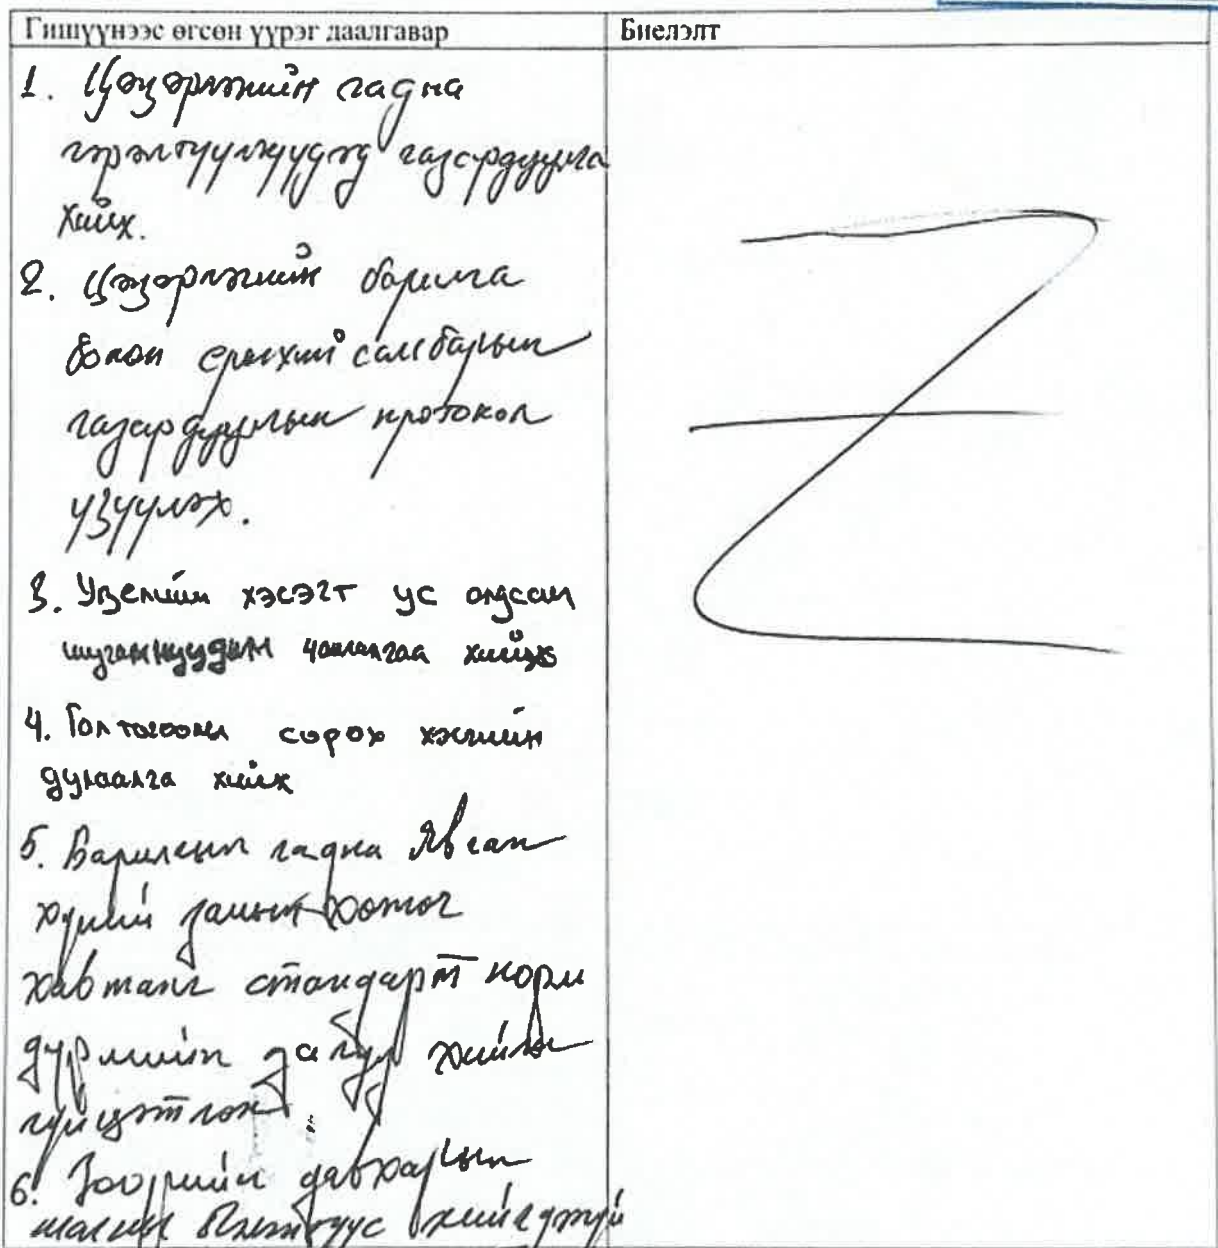 Гишүүнээс өгсөн үүрэг даалгавар
Биелэлт
1. Цэцэрлэгийн гадна
гэрэлтүүлгүүдэд газардуулга
хийх.
2. Цэцэрлэгийн барилга
болон ерөнхий самбарын
газардуулын протокол
үзүүлэх.
3. Узелийн хэсэгт ус алдсан
шугамнуудын хийх
4. Гол тогооны сорох хэсгийн
дулаалга хийх
5. Барилгын гадна явган
хүний замын
хавтанг стандарт норм
дүрмийн дагуу хийж
гүйцэтгэх.
6. Зоорийн давхарын
хийгдээгүй